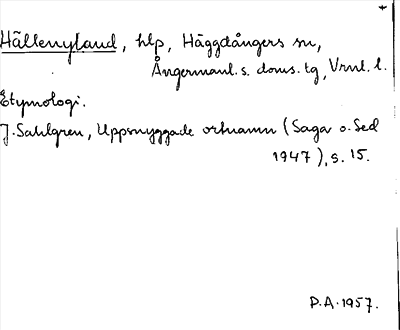 Hällenyland, hlp, Häggdångers sn,
Ångermanl. s. doms. tg, Vrnl. l.
Etymologi.
J. Sahlgren, Uppsnyggade ortnamn (Saga o. Sed
1947), s. 15.
P.A. 1957.